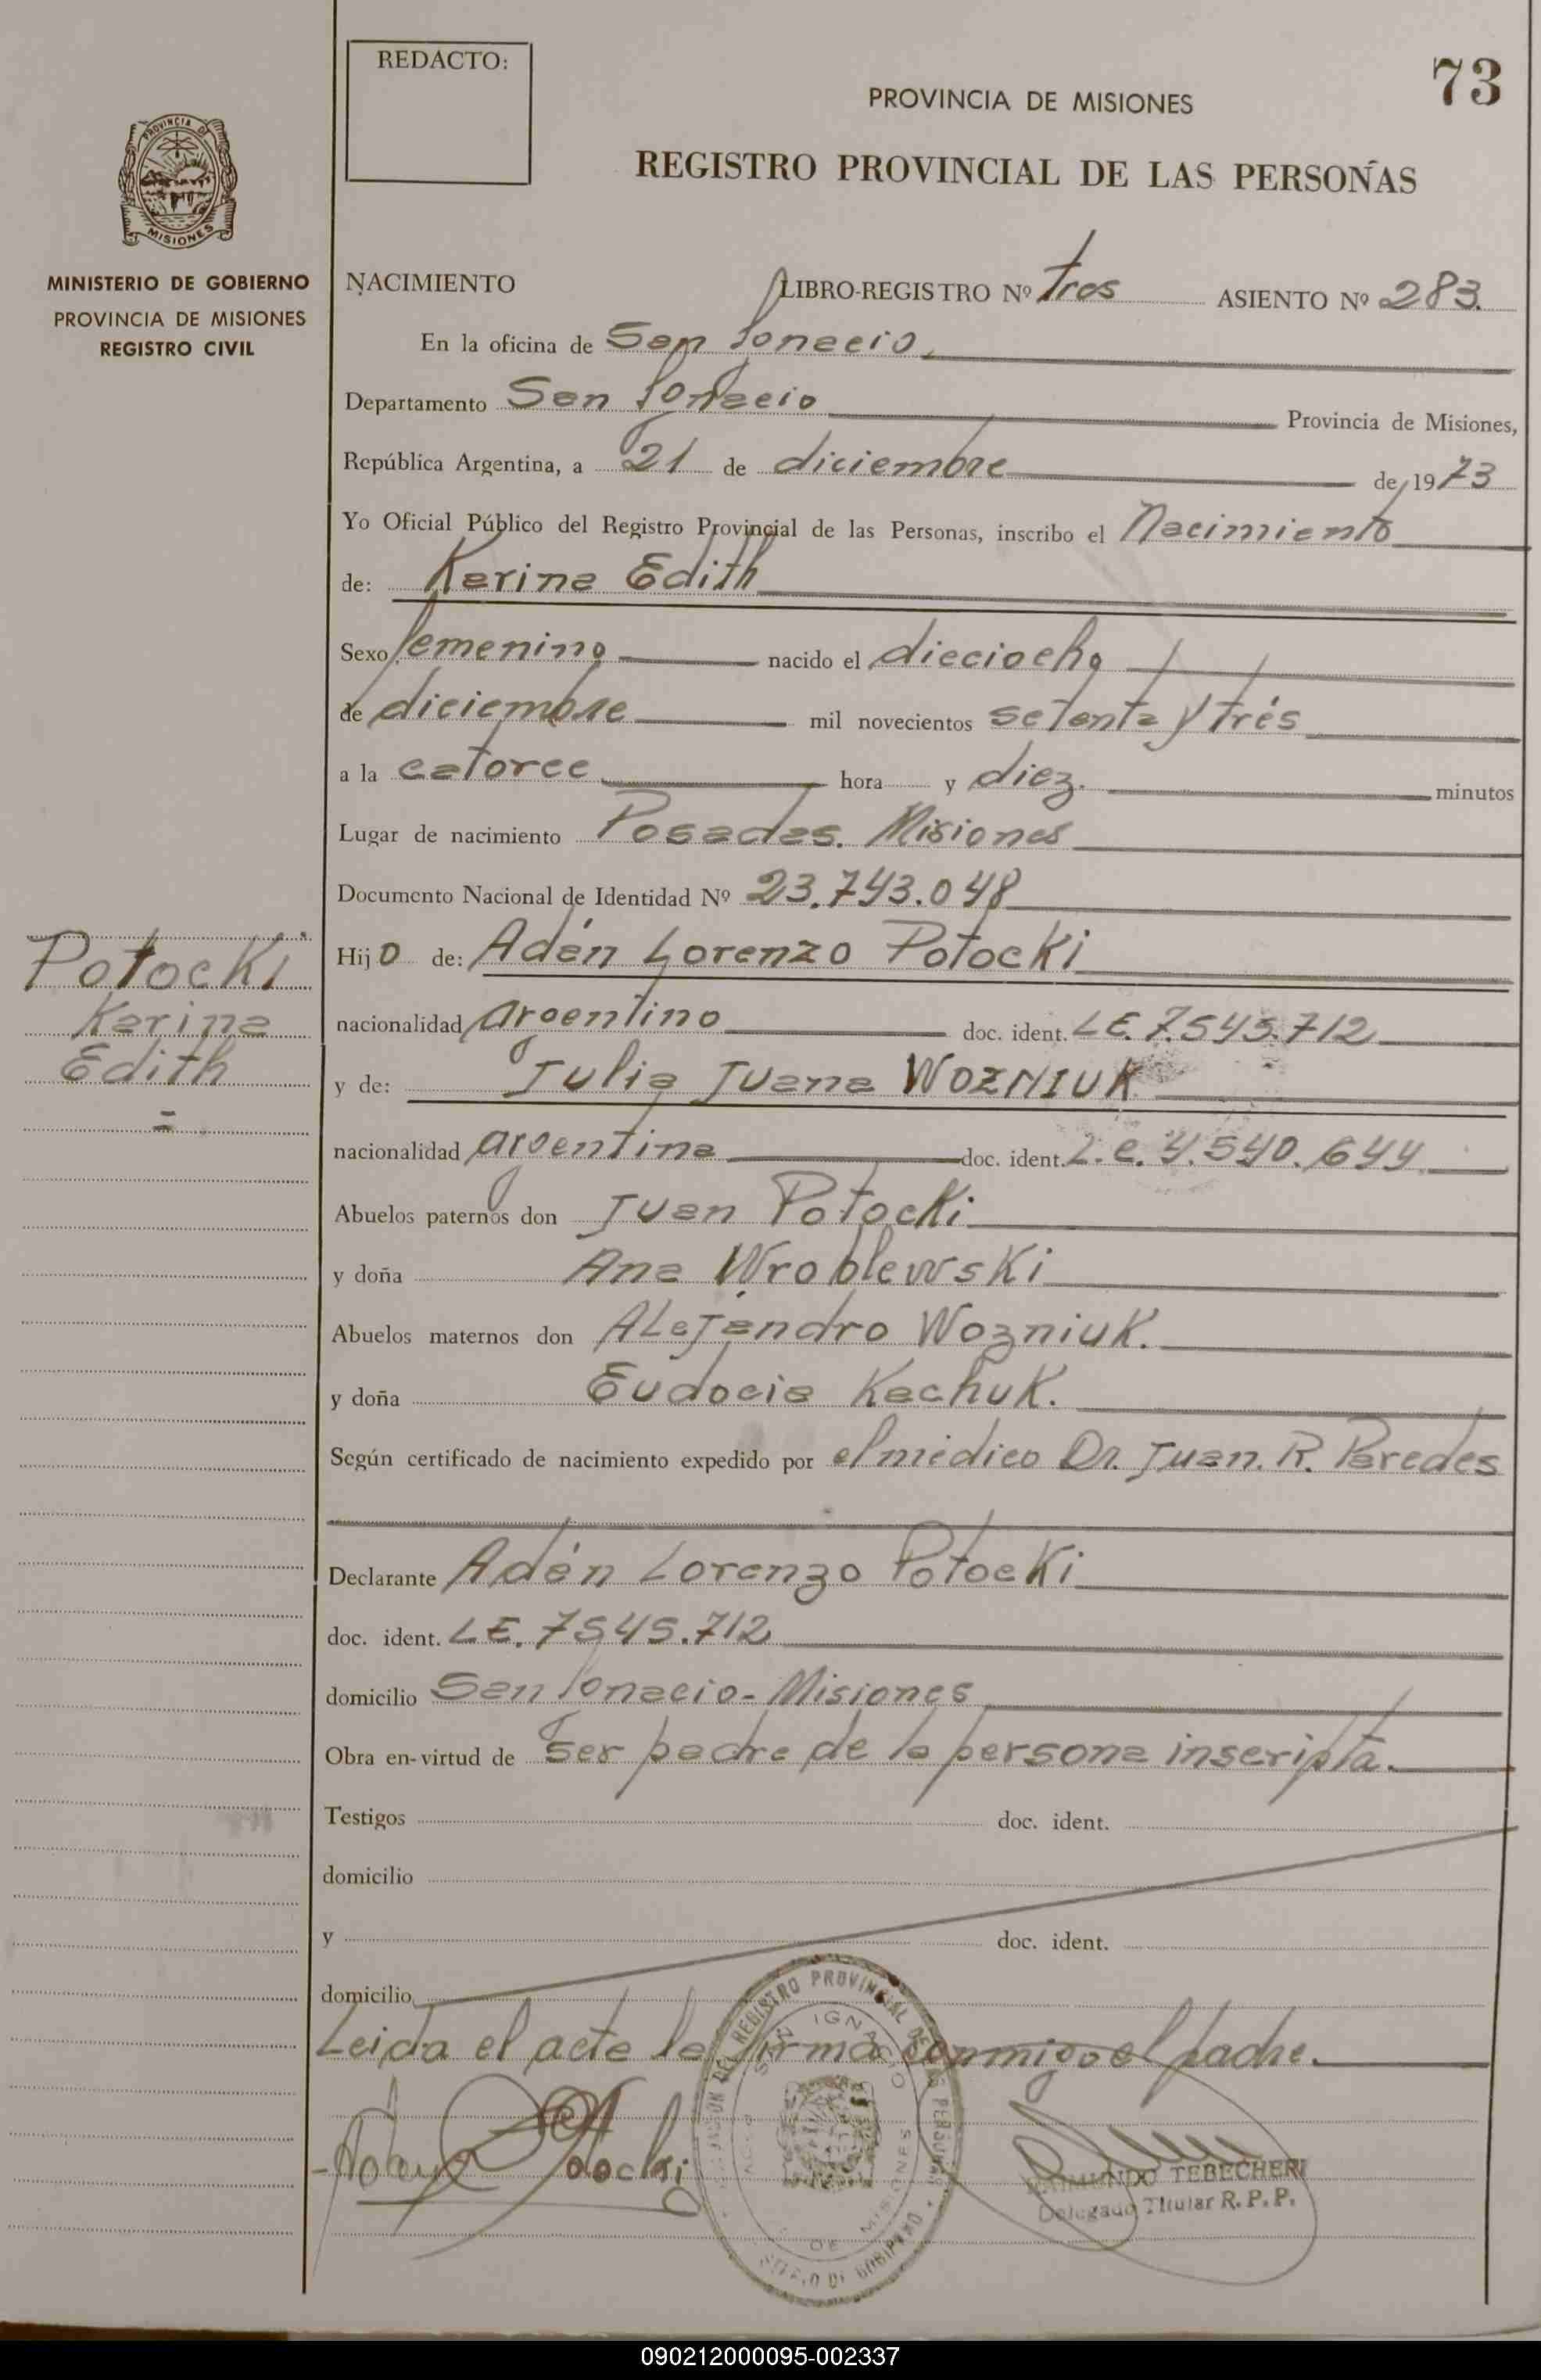 REDACTO:
73
PROVINCIA DE MISIONES
REGISTRO PROVINCIAL DE LAS PERSONAS
PROVINCIA DE
MISIONES
MINISTERIO DE GOBIERNO
PROVINCIA DE MISIONES
REGISTRO CIVIL
NACIMIENTO LIBRO-REGISTRO Nº Tres ASIENTO Nº 283.
En la oficina de San Ignacio,
Departamento San Ignacio Provincia de Misiones,
República Argentina, a 21 de diciembre de 1973
Yo Oficial Público del Registro Provincial de las Personas, inscribo el Nacimiento
de: Karina Edith
Sexo femenino nacido el dieciocho
de diciembre mil novecientos setenta y trés
a la catorce hora y diez. minutos
Lugar de nacimiento Posadas. Misiones
Documento Nacional de Identidad Nº 23.743.048
Hijo de: Adén Lorenzo Potocki
nacionalidad argentino doc. ident. LE. 7.545.712
y de: Julia Juana WOZNIUK.
nacionalidad argentina doc. ident. L.C. 4.540.644
Abuelos paternos don Juan Potocki
y doña Ana Wroblewski
Abuelos maternos don Alejandro Wozniuk.
y doña Eudocia Kachuk.
Según certificado de nacimiento expedido por el médico Dr. Juan. R. Paredes
Declarante Adén Lorenzo Potocki
doc. ident. LE. 7545.712
domicilio San Ignacio- Misiones
Obra en virtud de ser padre de la persona inscripta.
Testigos doc. ident.
domicilio
y doc. ident.
domicilio
Leida el acta la firma conmigo el padre.
Potocki
Karina
Edith
RAIMUNDO TEBECHERI
Delegado Titular R. P. P.
DEL REGISTRO PROVINCIAL DE LAS PERSONAS
SAN IGNACIO
MISIONES
090212000095-002337